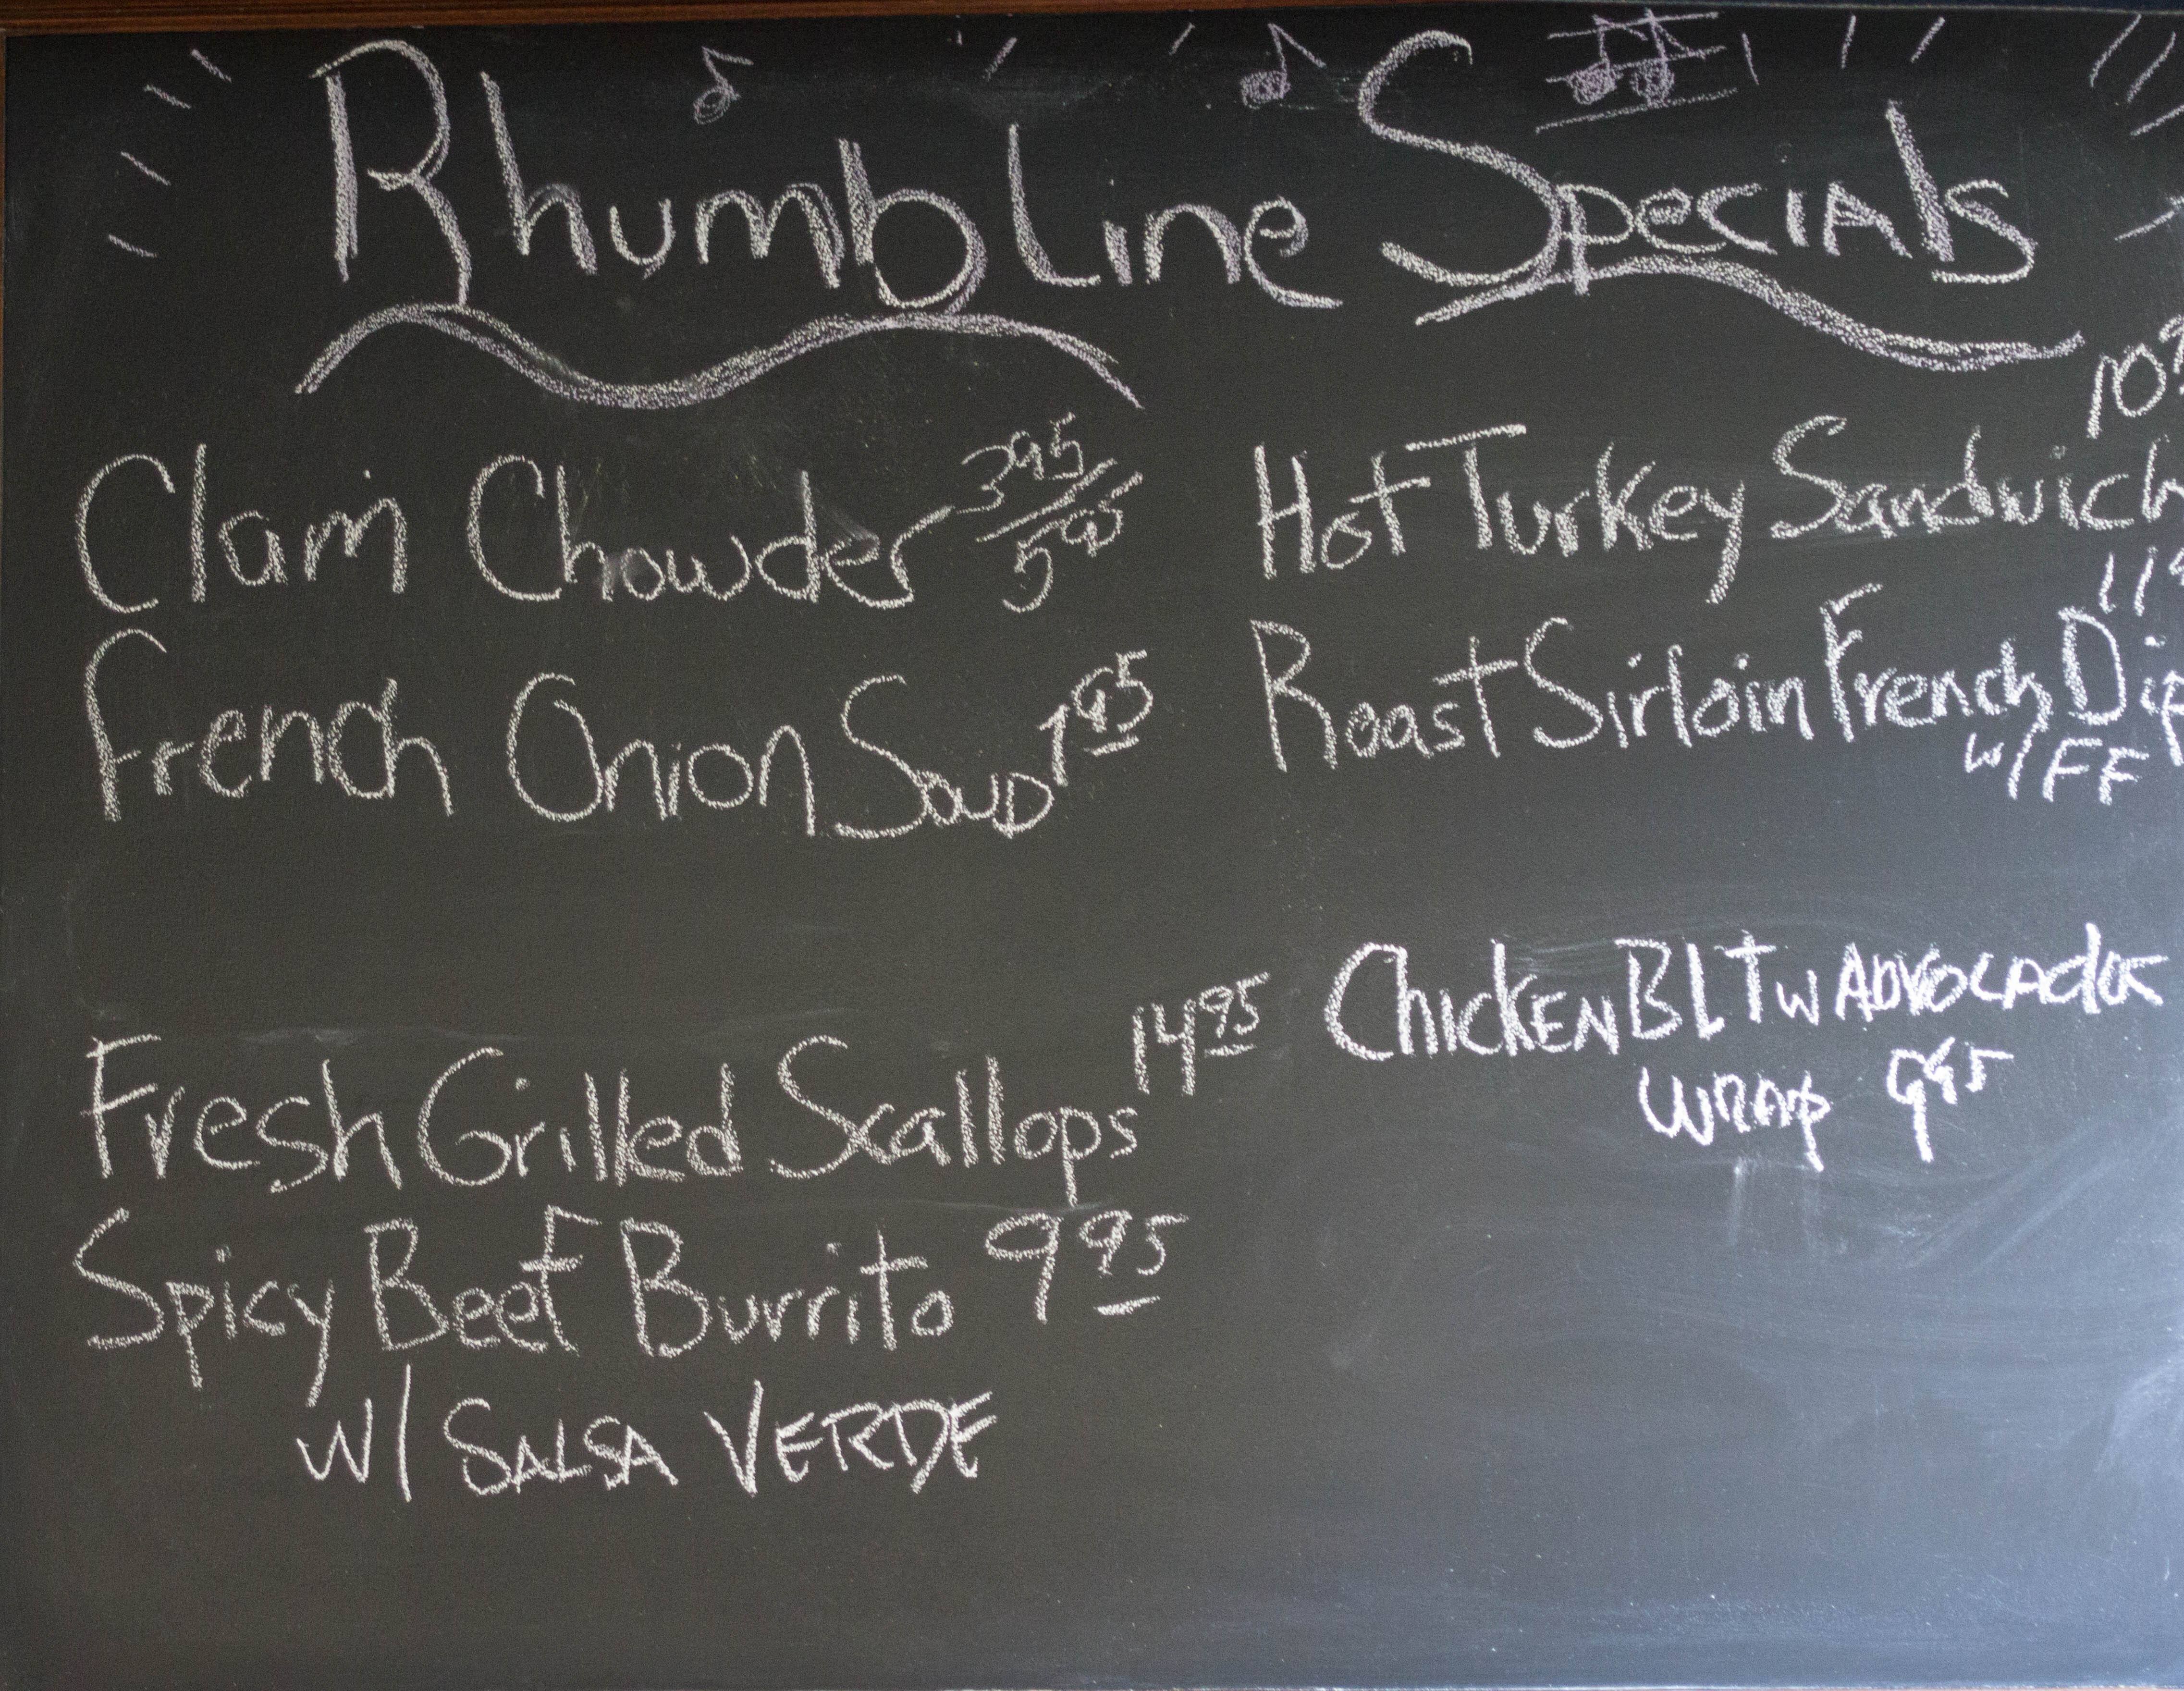 Rhumb Line Specials
Clam Chowder 3 95 / 5 95
French Onion Soup 7 95
Fresh Grilled Scallops 14 95
Spicy Beef Burrito 9 95
w/ SALSA VERDE
10
Hot Turkey Sandwich
11
Roast Sirloin French Dip
w/ FF
ChickEN BLT w ADVOCAdos
WRAp 9 95